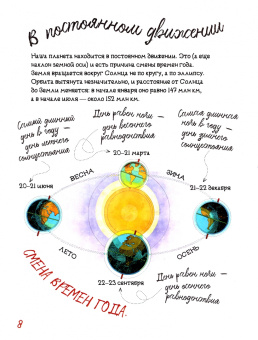 В постоянном движении
Наша планета находится в постоянном движении. Это (а еще
наклон земной оси) и есть причина смены времен года.
Земля вращается вокруг Солнца не по кругу, а по эллипсу.
Орбита вытянута незначительно, и расстояние от Солнца
до Земли меняется: в начале января оно равно 147 млн км,
а в начале июля — около 152 млн км.
Самый длинный
день в году —
день летнего
солнцестояния
День равен ночи —
день весеннего
равноденствия
Самая длинная
ночь в году —
день зимнего
солнцестояния
20–21 марта
20–21 июня
21–22 декабря
ВЕСНА
ЗИМА
ЛЕТО
ОСЕНЬ
22–23 сентября
День равен ночи —
день осеннего
равноденствия
СМЕНА ВРЕМЕН ГОДА.
8